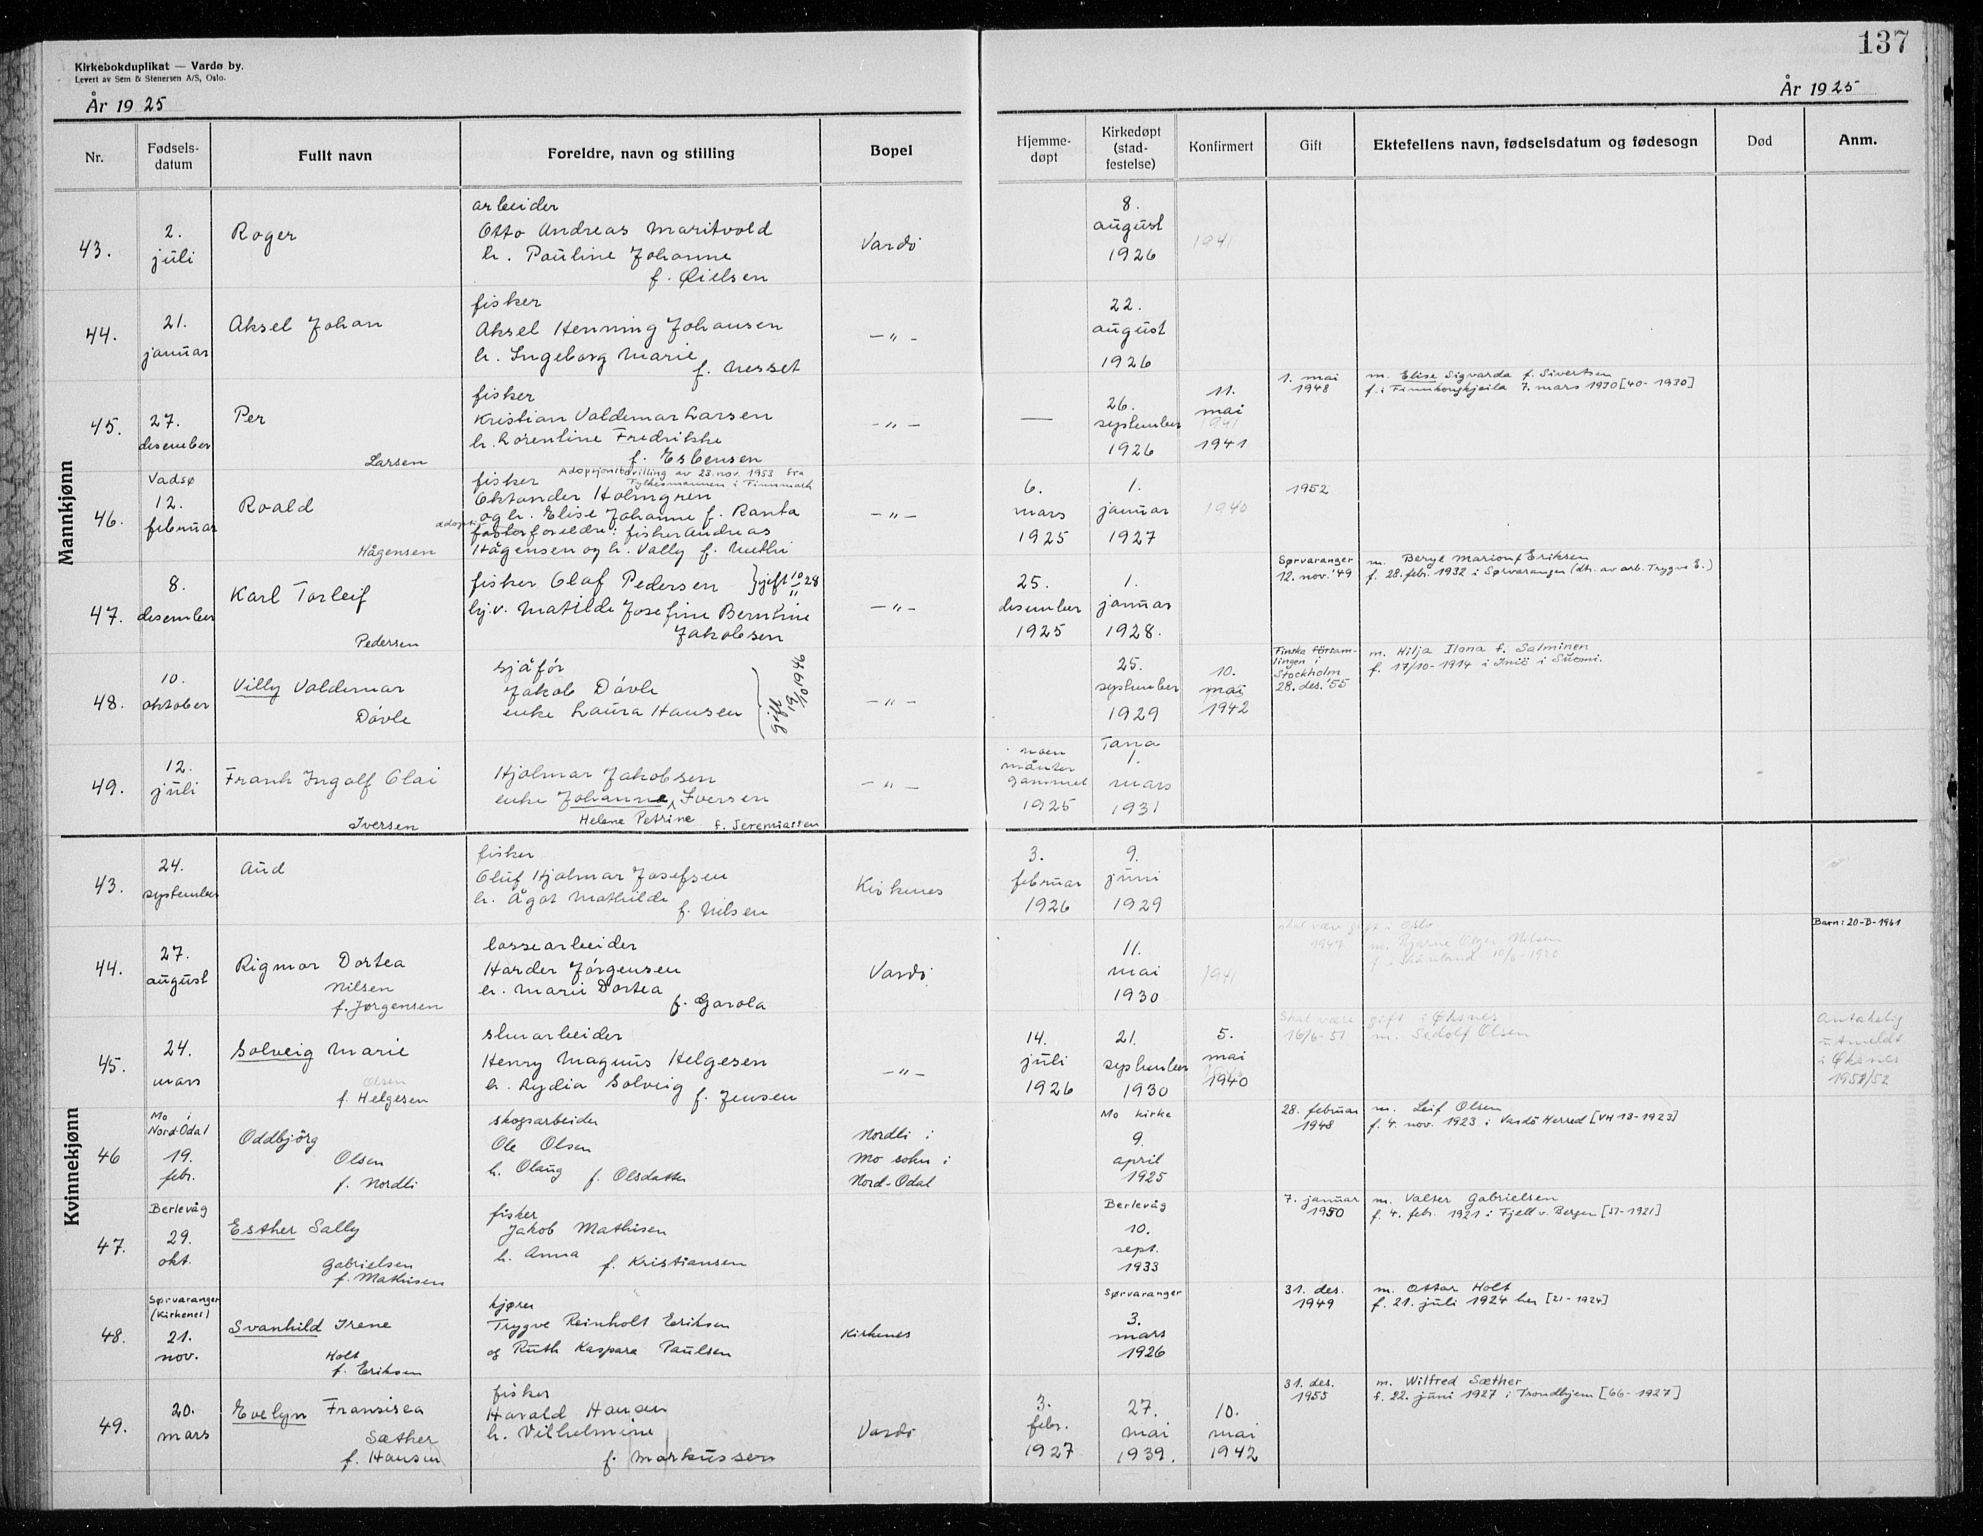 137
Kirkebokduplikat — Vardø by.
Levert av Sem & Stenersen A/S, Oslo.
År 1925
År 1925
Nr.
Fødsels-
datum
Fullt navn
Foreldre, navn og stilling
Bopel
Hjemme-
døpt
Kirkedøpt
(stad-
festelse)
Konfirmert
Gift
Ektefellens navn, fødselsdatum og fødesogn
Død
Anm.
Mannkjønn
43.
2.
juli
Roger
arbeider
Otto Andreas Maritvold
h. Pauline Johanne
f.
Vardö
8.
august
1926
1941
44.
21.
januar
Aksel Johan
fisker
Aksel Henning Johansen
h. Ingeborg Marie
f. Nesset
—"—
22.
august
1926
45.
27.
desember
Per
Larsen
fisker
Kristian Valdemar Larsen
h. Lorentine Fredrikke
f. Esbensen
—"—
—
26.
september
1926
11.
mai
1941
1941
1. mai
1948
m. Elise Sigvarda f. Sivertsen
f. i Finnkongkjeila 7. mars 1930 [40-1930]
46.
Vadsø
12.
februar
Roald
Hågensen
fisker
Adopsjonsbevilling av 23. nov. 1953 fra
Fylkesmannen i Finnmark
Oktander Holmgren
og h. Elise Johanne f. Ranta
adoptiv
fosterforeldre: fisker Andreas
Hågensen og h. Vally f. Mathi
—"—
6.
mars
1925
1.
januar
1927
1940
1952
47.
8.
desember
Karl Torleif
Pedersen
fisker Olaf Pedersen } gift 10/11 28
hj.v. Matilde Josefine Berntine
Jakobsen
—"—
25.
desember
1925
1.
januar
1928.
Sørvaranger
12. nov. '49
m. Beryl Marion f Eriksen
f. 28. febr. 1932 i Sørvaranger (dtr. av arb. Trygve E.)
48.
10.
oktober
Villy Valdemar
Dövle
sjåför
Jakob Dövle
enke Laura Hansen
gift 19/10 1946
—"—
25.
september
1929
10.
mai
1942
Finska församlingen i
Stockholm
28. des. '55
m. Hilja Ilona f. Salminen
f. 17/10-1914 i Iniö i Suomi.
49.
12.
juli
Frank Ingolf Olai
Iversen
Hjalmar Jakobsen
enke Johanne Iversen
Helene Petrine f. Jeremiassen
—"—
noen
månter
gammel
1925
Tana
1.
mars
1931
Kvinnekjønn
43.
24.
september
Aud
fisker
Oluf Hjalmar Josefsen
h. Ågot Mathilde
f. Nilsen
Kirkenes
3.
februar
1926
9.
juni
1929
44.
27.
august
Rigmor Dortea
Nilsen
f. Jørgensen
lossearbeider
Harder Jörgensen
h. Marie Dortea
f. Garola
Vardö
11.
mai
1930
1941
skal være gift i Oslo
1947 m. Bjarne Nilsen
f. i Skånland 10/6-1920
Barn: 20-B-1961
45.
24.
mars
Solveig Marie
Olsen
f. Helgesen
slmarbeider
Henry Magnus Helgesen
h. Lydia Solveig
f. Jensen
—"—
14.
juli
1926
21.
september
1930
5.
mai
1940
Skal være gift i Øksnes
16/6-51 m. Sedolf Olsen
Antakelig
i Øksnes
1951/52
46
Mo i
Nord-Odal
19.
febr.
Oddbjörg
Olsen
f. Nordli
skogsarbeider
Ole Olsen
h. Olaug f. Olsdatter
Nordli i
Mo sokn i
Nord-Odal
Mo kirke
9.
april
1925
28. februar
1948
m. Leif Olsen
f. 4. nov. 1923 i Vardö Herred [VH 13-1923]
47.
Berlevåg
29.
okt.
Esther Sally
Gabrielsen
f. Mathisen
fisker
Jakob Mathisen
h. Anna
f. Kristiansen
Berlevåg
10.
sept.
1933
7. januar
1950
m. Valter Gabrielsen
f. 4. feb. 1921 i Fjell v. Bergen [51-1921]
48.
Sørvaranger
(Kirkenes)
21.
nov.
Svanhild Irene
Holt
f. Eriksen
kjører
Trygve Reinholt Eriksen
og Ruth Kaspara Paulsen
Kirkenes
Sørvaranger
3.
mars
1926
31. des.
1949
m. Ottar Holt
f. 21. juli 1924 her [21-1924]
49.
20.
mars
Evelyn Fransisca
Sæther
f. Hansen
fisker
Harald Hansen
h. Vilhelmine
f. Markussen
Vardö
3.
febr.
1927
27.
mai
1939.
10.
mai
1942
31. des.
1955
m. Wilfred Sæther
f. 22. juni 1927 i Trondhjem [66-1927]